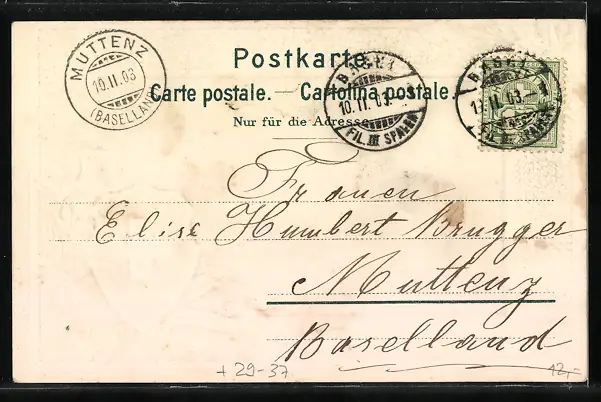 MUTTENZ
10.II.03
(BASELLAND)
Postkarte.
BASEL 1
10.II.03
FIL. III SPALEN
BASEL 1
11.II.03
FIL. III SPALEN
Carte postale. — Cartolina postale.
Nur für die Adresse
Frauen
Elise Humbert Brugger
Muttenz
Baselland
+ 29-37
12,-